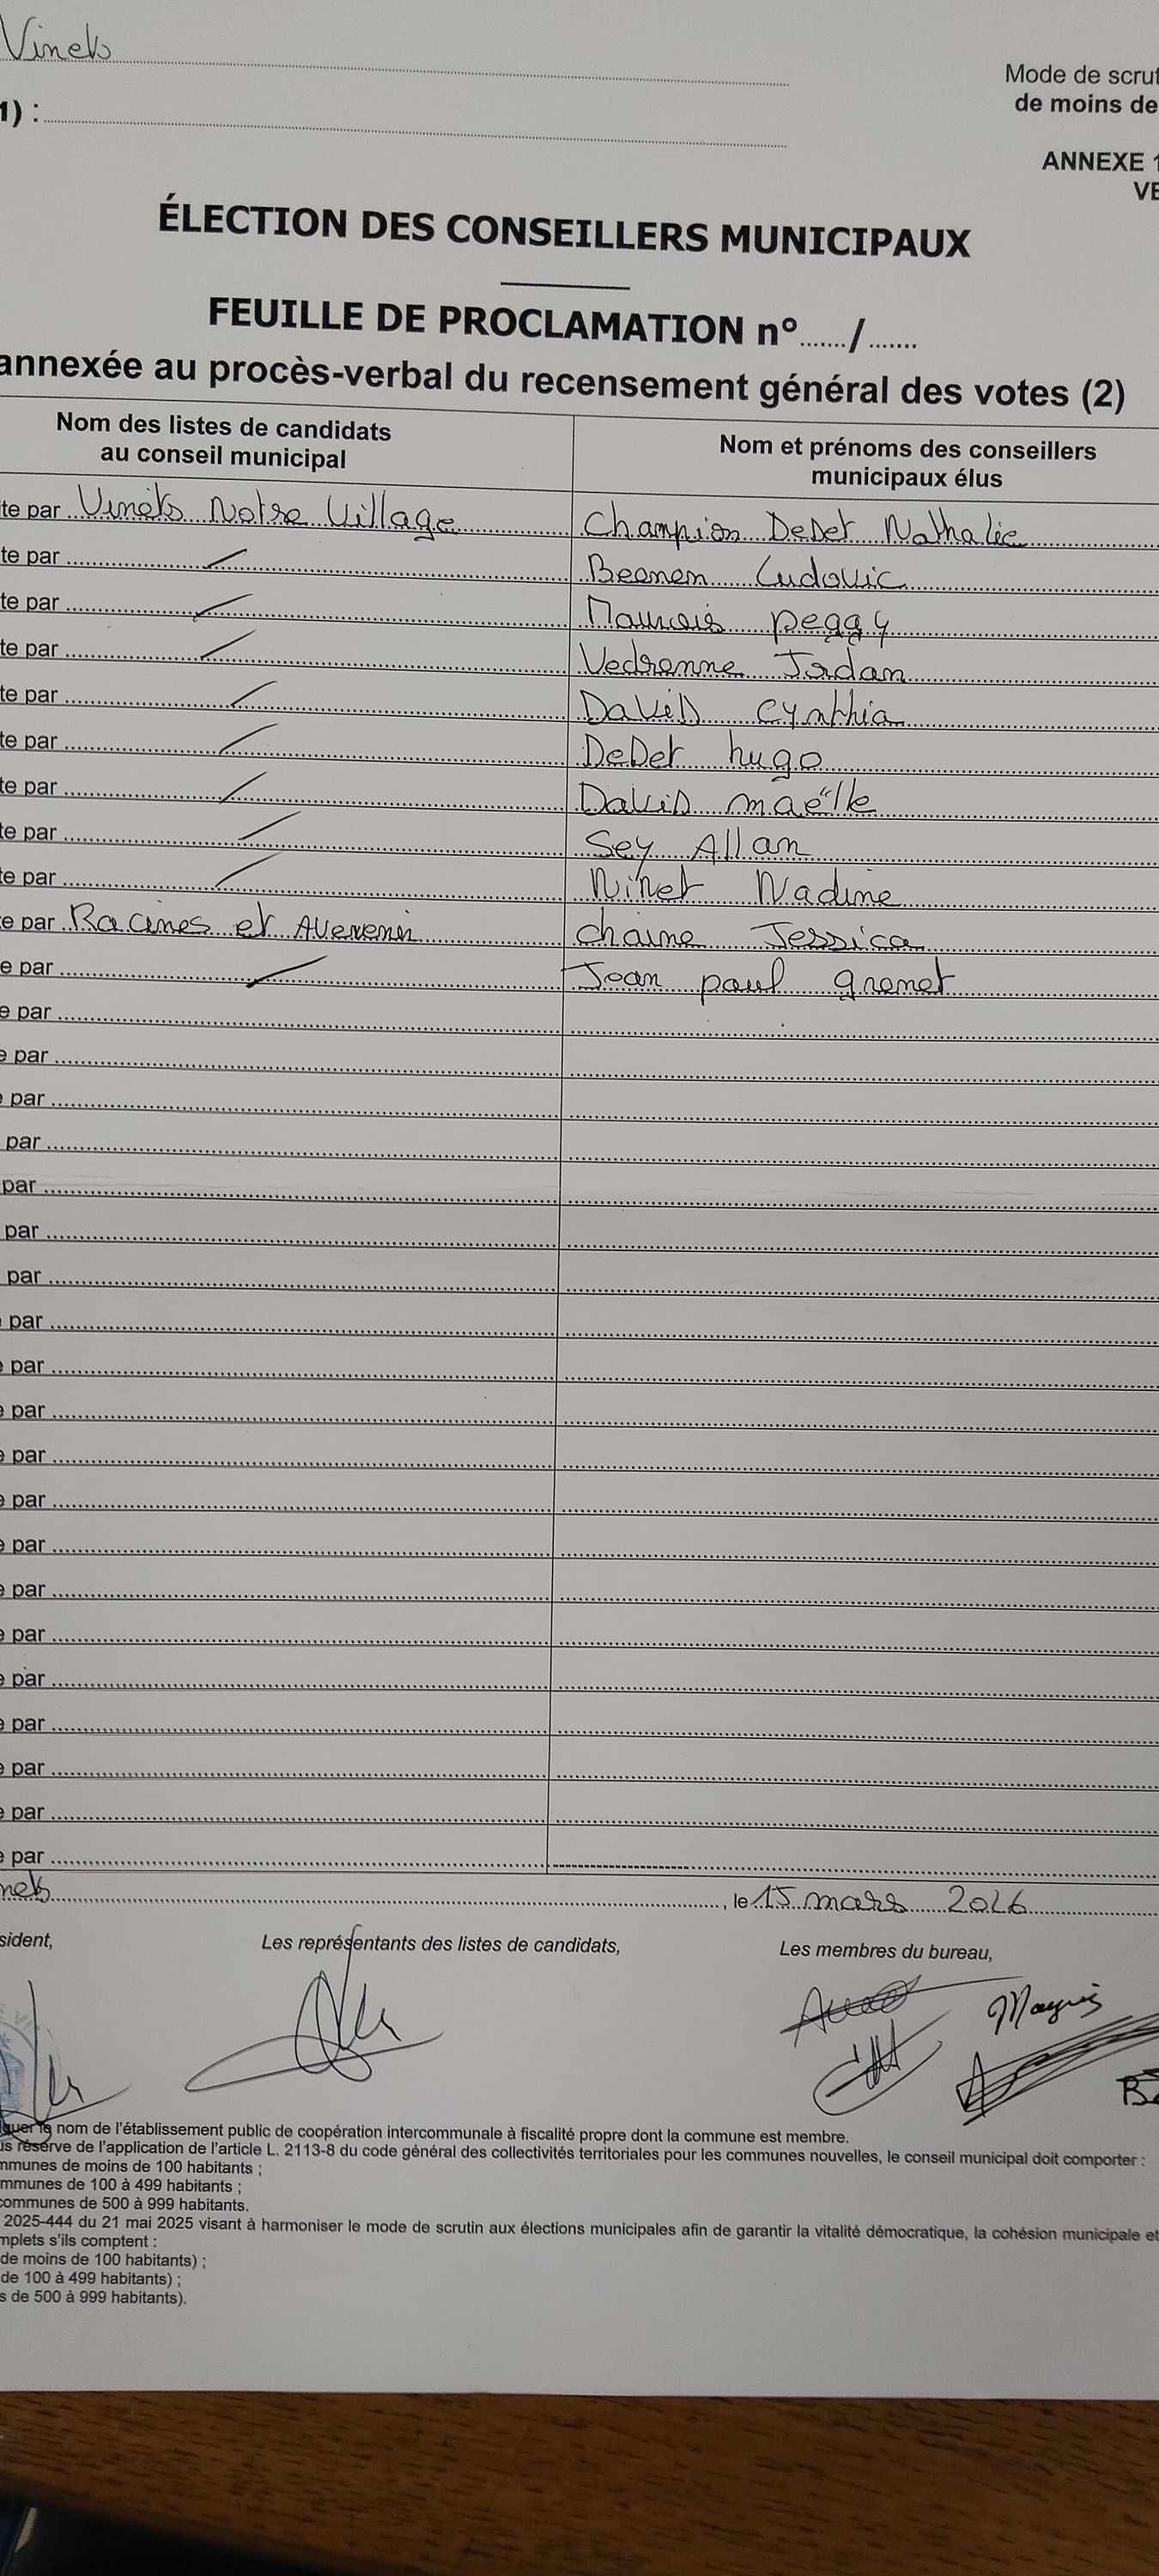 Vinets
Mode de scrut
1) :
de moins de
ANNEXE 1
VE
ÉLECTION DES CONSEILLERS MUNICIPAUX
FEUILLE DE PROCLAMATION n°....../......
annexée au procès-verbal du recensement général des votes (2)
Nom des listes de candidats
au conseil municipal
Nom et prénoms des conseillers
municipaux élus
te par Vinets Notre Village Champion DeDet Nathalie
te par Ludovic
te par peggy
te par Vedrenne Jordan
te par DaviD Cynthia
te par DeDet hugo
te par DaviD maëlle
te par Sey Allan
te par Ninet Nadine
te par Racines et chaine Jessica
e par Jean paul
e par
e par
e par
par
par
par
par
e par
e par
e par
e par
e par
e par
e par
e par
e par
e par
e par
e par
e par
nets, le 15 mars 2026
sident,
Les représentants des listes de candidats,
Les membres du bureau,
quer le nom de l'établissement public de coopération intercommunale à fiscalité propre dont la commune est membre.
us réserve de l'application de l'article L. 2113-8 du code général des collectivités territoriales pour les communes nouvelles, le conseil municipal doit comporter :
mmunes de moins de 100 habitants ;
mmunes de 100 à 499 habitants ;
communes de 500 à 999 habitants.
2025-444 du 21 mai 2025 visant à harmoniser le mode de scrutin aux élections municipales afin de garantir la vitalité démocratique, la cohésion municipale et
mplets s'ils comptent :
de moins de 100 habitants) ;
de 100 à 499 habitants) ;
s de 500 à 999 habitants).